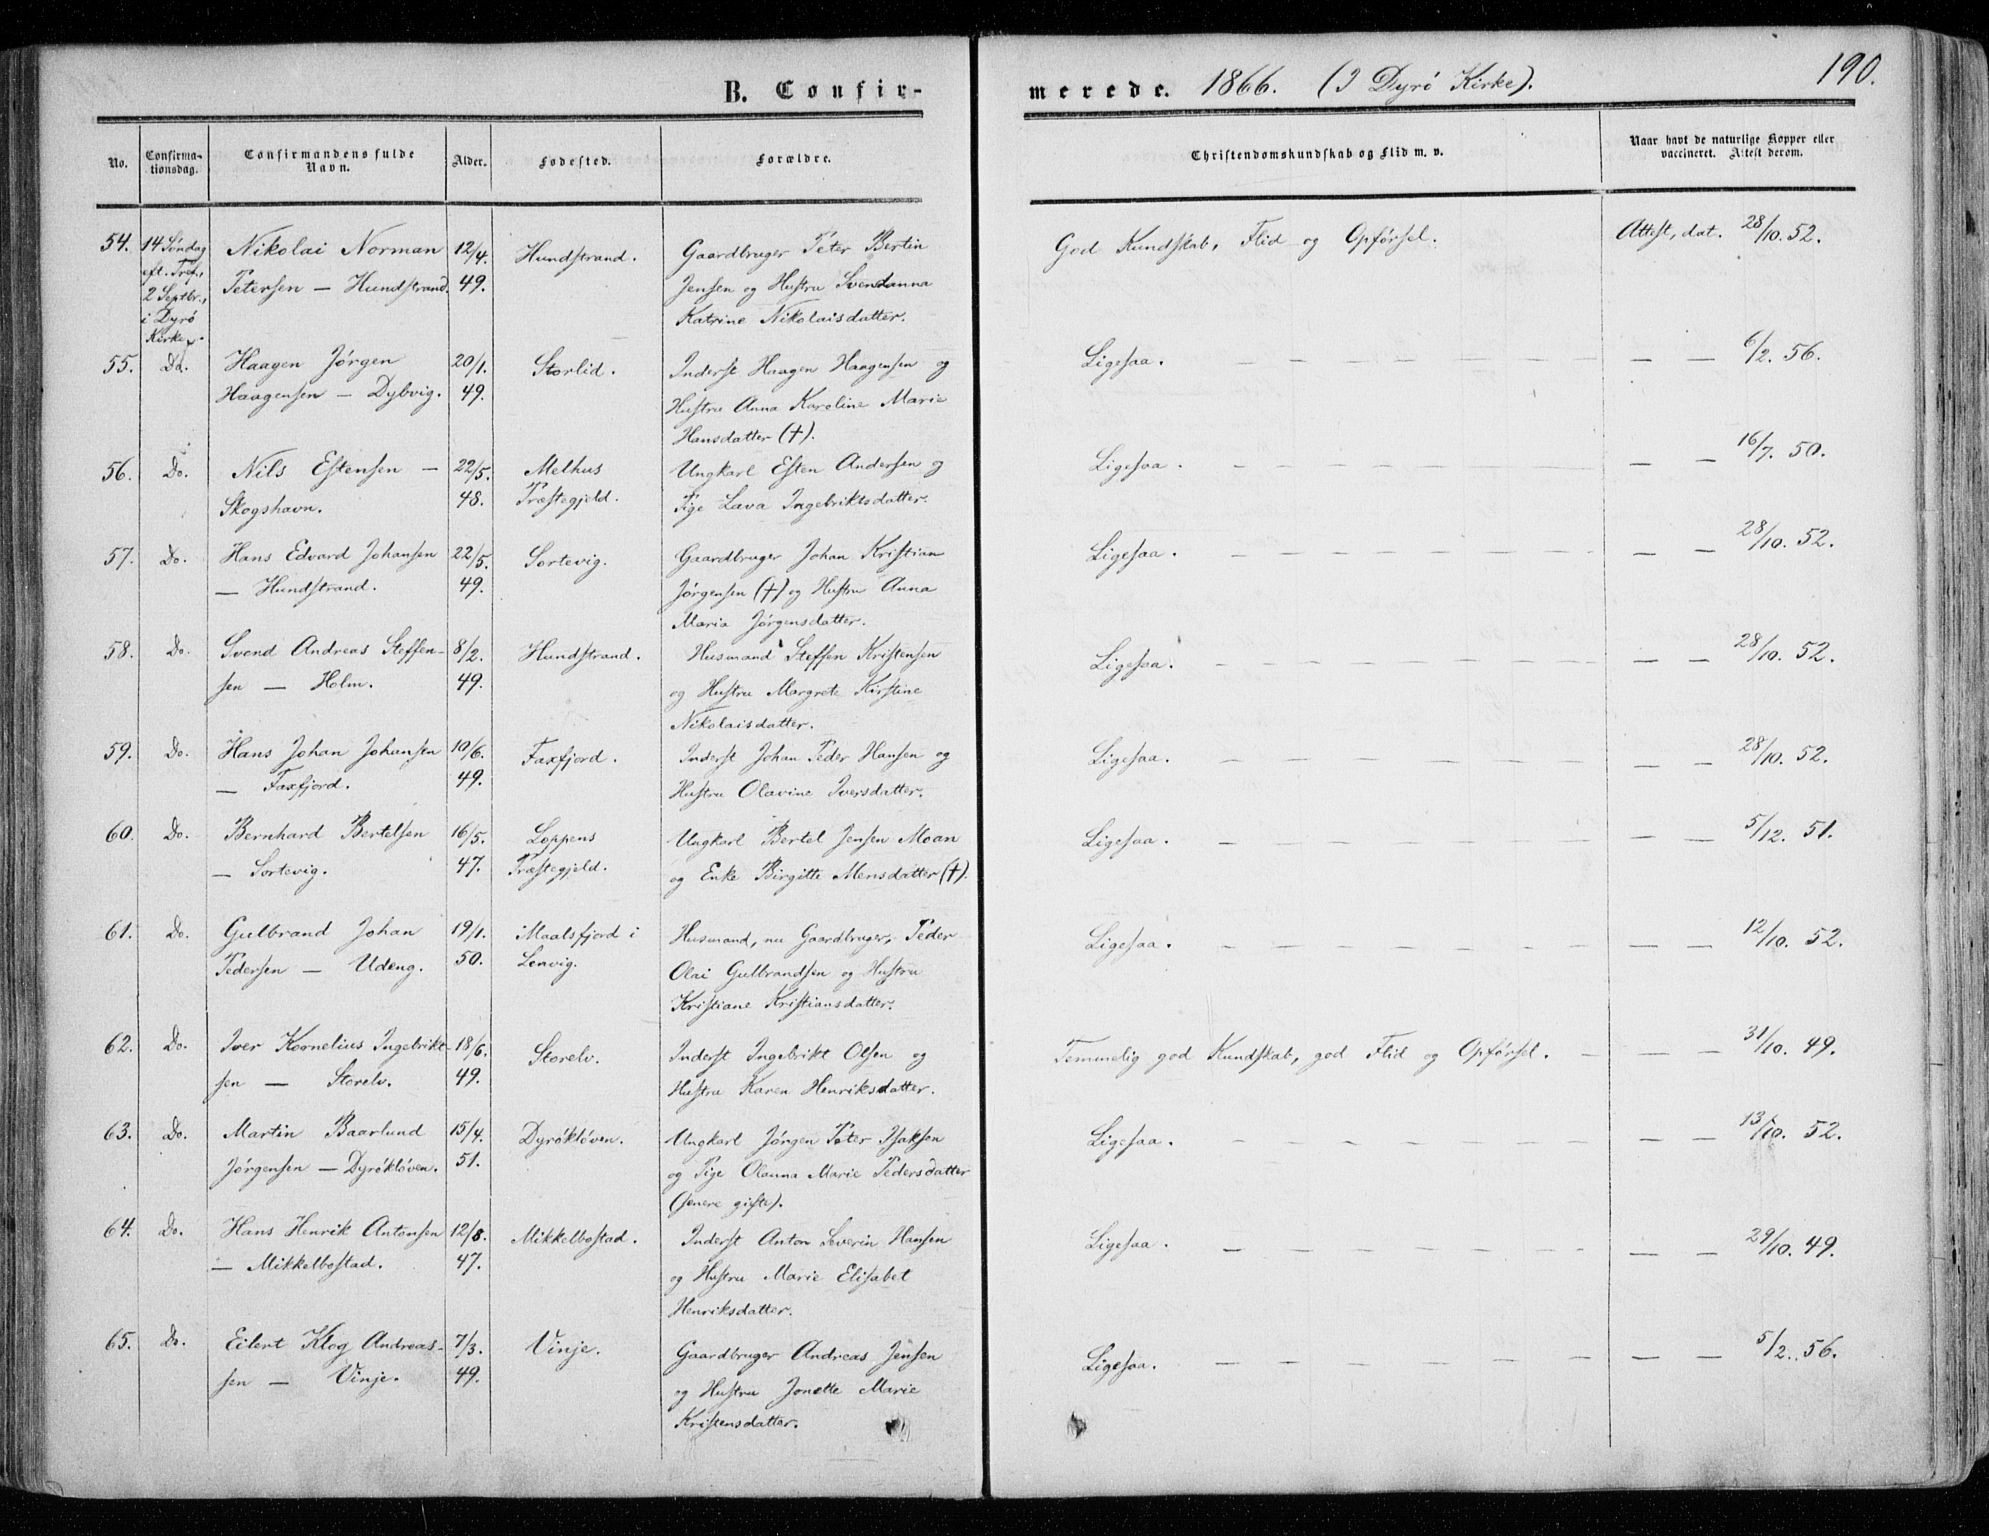 B. Confir-
merede. 1866. (I Dyrø Kirke). 190.
No. Confirma-tionsdag. Confirmandens fulde Navn. Alder. Fødested. Forældre. Christendomskundskab og Flid m. v. Naar havt de naturlige Kopper eller vaccineret. Attest derom.
54. 14 Søndag Nikolai Norman 12/4. Hundstrand. Gaardbruger Peter Bertin God Kundskab, Flid og Opførsel. Attest, dat. 28/10. 52.
eft. Tref., Petersen — Hundstrand. 49. Jensen og Hustru Svendanna
2 Septbr., i Dyrö Kirke. Katrine Nikolaisdatter.
55. Do. Haagen Jørgen 20/1. Storlid. Inderst Haagen Haagensen og Ligesaa. — — 6/2. 56.
Haagensen — Dybvig. 49. Hustru Anna Karoline Marie
Hansdatter (†).
56. Do. Nils Estensen — 22/5. Melhus Ungkarl Esten Andersen og Ligesaa. — — 16/7. 50.
Skogshavn. 48. Præstegjeld. Pige Lava Ingebriktsdatter.
57. Do. Hans Edvard Johansen 22/5. Sortevig. Gaardbruger Johan Kristian Ligesaa. — — 28/10. 52.
— Hundstrand. 49. Jørgensen (†) og Hustru Anna
Maria Jørgensdatter.
58. Do. Svend Andreas Steffen- 8/2. Hundstrand. Husmand Steffen Kristensen Ligesaa. — — 28/10. 52.
sen — Holm. 49. og Hustru Margrete Kirstine
Nikolaisdatter.
59. Do. Hans Johan Johansen 10/6. Faxfjord. Inderst Johan Peder Hansen og Ligesaa. — — 28/10. 52.
— Faxfjord. 49. Hustru Olavine Iversdatter.
60. Do. Bernhard Bertelsen 16/5. Loppens Ungkarl Bertel Jensen Moan Ligesaa. — — 5/12. 51.
— Sortevig. 47. Præstegjeld. og Enke Birgitte Monsdatter (†).
61. Do. Gulbrand Johan 19/1. Maalsfjord i Husmand, nu Gaardbruger, Peder Ligesaa. — — 12/10. 52.
Pedersen — Udeng. 50. Lenvig. Olai Gulbrandsen og Hustru
Kristiane Kristiansdatter.
62. Do. Iver Kornelius Ingebrikt- 18/6. Storelv. Inderst Ingebrikt Olsen og Temmelig god Kundskab, god Flid og Opførsel. — — 31/10. 49.
sen — Storelv. 49. Hustru Karen Henriksdatter.
63. Do. Martin Baarlund 15/4. Dyrökløven. Ungkarl Jørgen Peter Isaksen Ligesaa. — — 13/10. 52.
Jørgensen — Dyrökløven. 51. og Pige Olanna Marie Pedersdatter
(senere gifte).
64. Do. Hans Henrik Antonsen 12/8. Mikkelbostad. Inderst Anton Severin Hansen Ligesaa. — — 29/10. 49.
— Mikkelbostad. 47. og Hustru Marie Elisabet
Henriksdatter.
65. Do. Eilert Klog Andreas- 7/3. Vinje. Gaardbruger Andreas Jensen Ligesaa. — — 5/2. 56.
sen — Vinje. 49. og Hustru Jonette Marie
Kristensdatter.